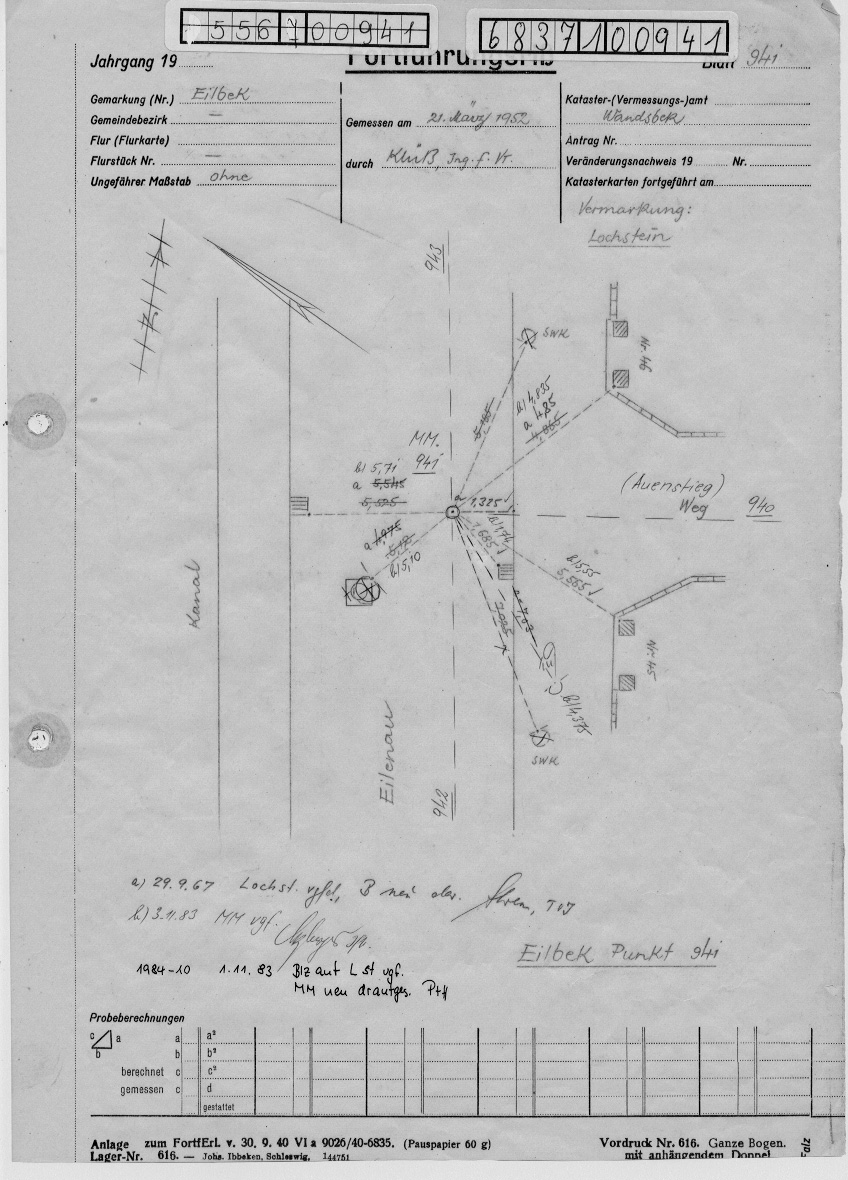 556700941
6837100941
Jahrgang 19
Fortführungsriß
Blatt 941
Gemarkung (Nr.) Eilbek
Gemeindebezirk —
Flur (Flurkarte)
Flurstück Nr. —
Ungefährer Maßstab ohne
Gemessen am 21. März 1952
durch Kluß, Ing. f. Vr.
Kataster-(Vermessungs-)amt
Wandsbek
Antrag Nr.
Veränderungsnachweis 19 Nr.
Katasterkarten fortgeführt am
Vermarkung:
Lochstein
943
SWK
Nr. 46
b) 4,835
a 4,85
4,865
5,185
MM.
941
b) 5,71
a 5,545
5,525
(Auenstieg)
Weg 940
a 1,325
b) 1,14
1,685
a 4,975
5,12
b) 5,10
b) 5,55
5,565
Kanal
a = 7,03
7,025
Nr. 45
b) 4,375
SWK
Eilenau
942
a) 29.9.67 Lochst. vgfd., B neu das.
b) 3.11.83 MM vgf.
1984-10 1.11.83 Blz auf Lst vgf.
MM neu draufges.
Eilbek Punkt 941
Probeberechnungen
c a a a²
b b b²
berechnet c c²
gemessen c d
gestattet
Anlage zum FortfErl. v. 30. 9. 40 VI a 9026/40-6835. (Pauspapier 60 g)
Lager-Nr. 616. — Johs. Ibbeken, Schleswig, 144751
Vordruck Nr. 616. Ganze Bogen.
mit anhängendem Doppel
Falz